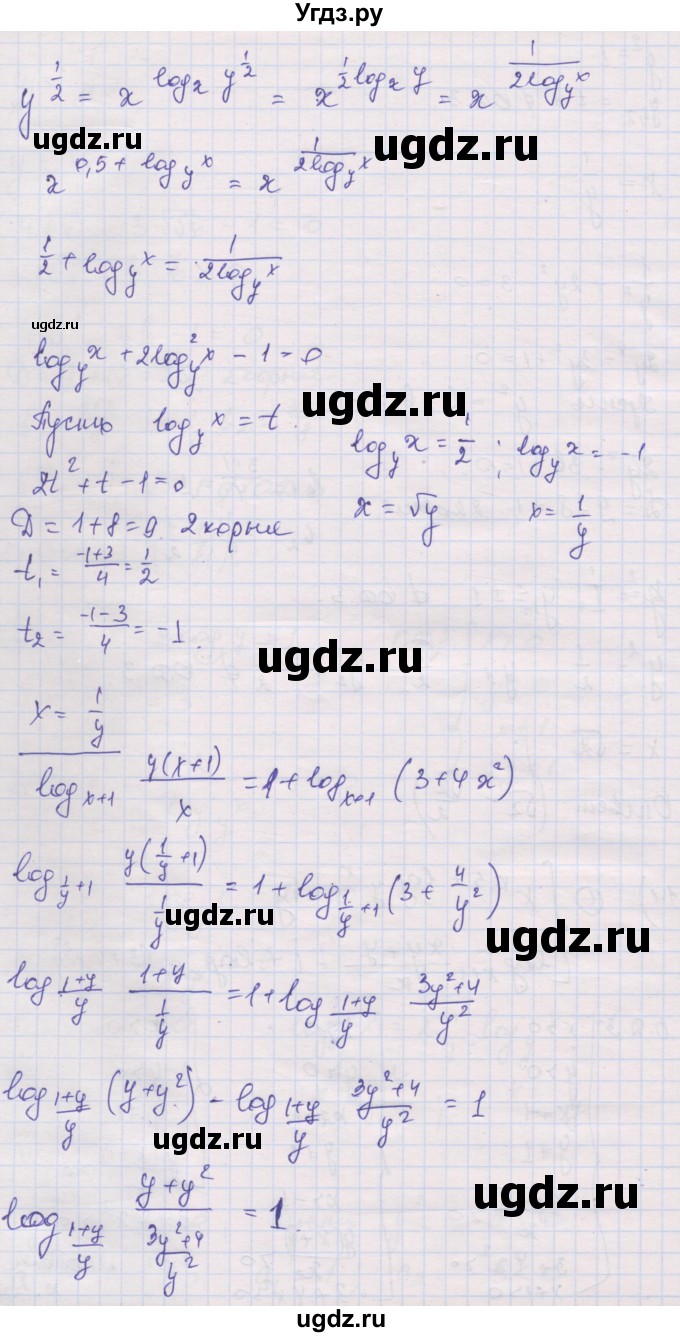 Угдз.ру
y^{1/2} = x^{log_x y^{1/2}} = x^{1/2 log_x y} = x^{1/(2log_y x)}
ugdz.ru
ugdz.ru
x^{0,5 + log_y x} = x^{1/(2log_y x)}
1/2 + log_y x = 1/(2log_y x)
ugdz.ru
log_y x + 2log_y^2 x - 1 = 0
ugdz.ru
Пусть log_y x = t
log_y x = 1/2 ; log_y x = -1
2t^2 + t - 1 = 0
x = √y    x = 1/y
D = 1 + 8 = 9 2 корня
t_1 = (-1+3)/4 = 1/2
t_2 = (-1-3)/4 = -1.
ugdz.ru
x = 1/y
log_{x+1} y(x+1)/x = 1 + log_{x+1} (3+4x^2)
log_{1/y+1} y(1/y+1)/(1/y) = 1 + log_{1/y+1} (3+4/y^2)
ugdz.ru
ugdz.ru
log_{(1+y)/y} (1+y)/(1/y) = 1 + log_{(1+y)/y} (3y^2+4)/y^2
log_{(1+y)/y} (y+y^2) - log_{(1+y)/y} (3y^2+4)/y^2 = 1
ugdz.ru
ugdz.ru
log_{(1+y)/y} (y+y^2)/((3y^2+4)/y^2) = 1.
ugdz.ru